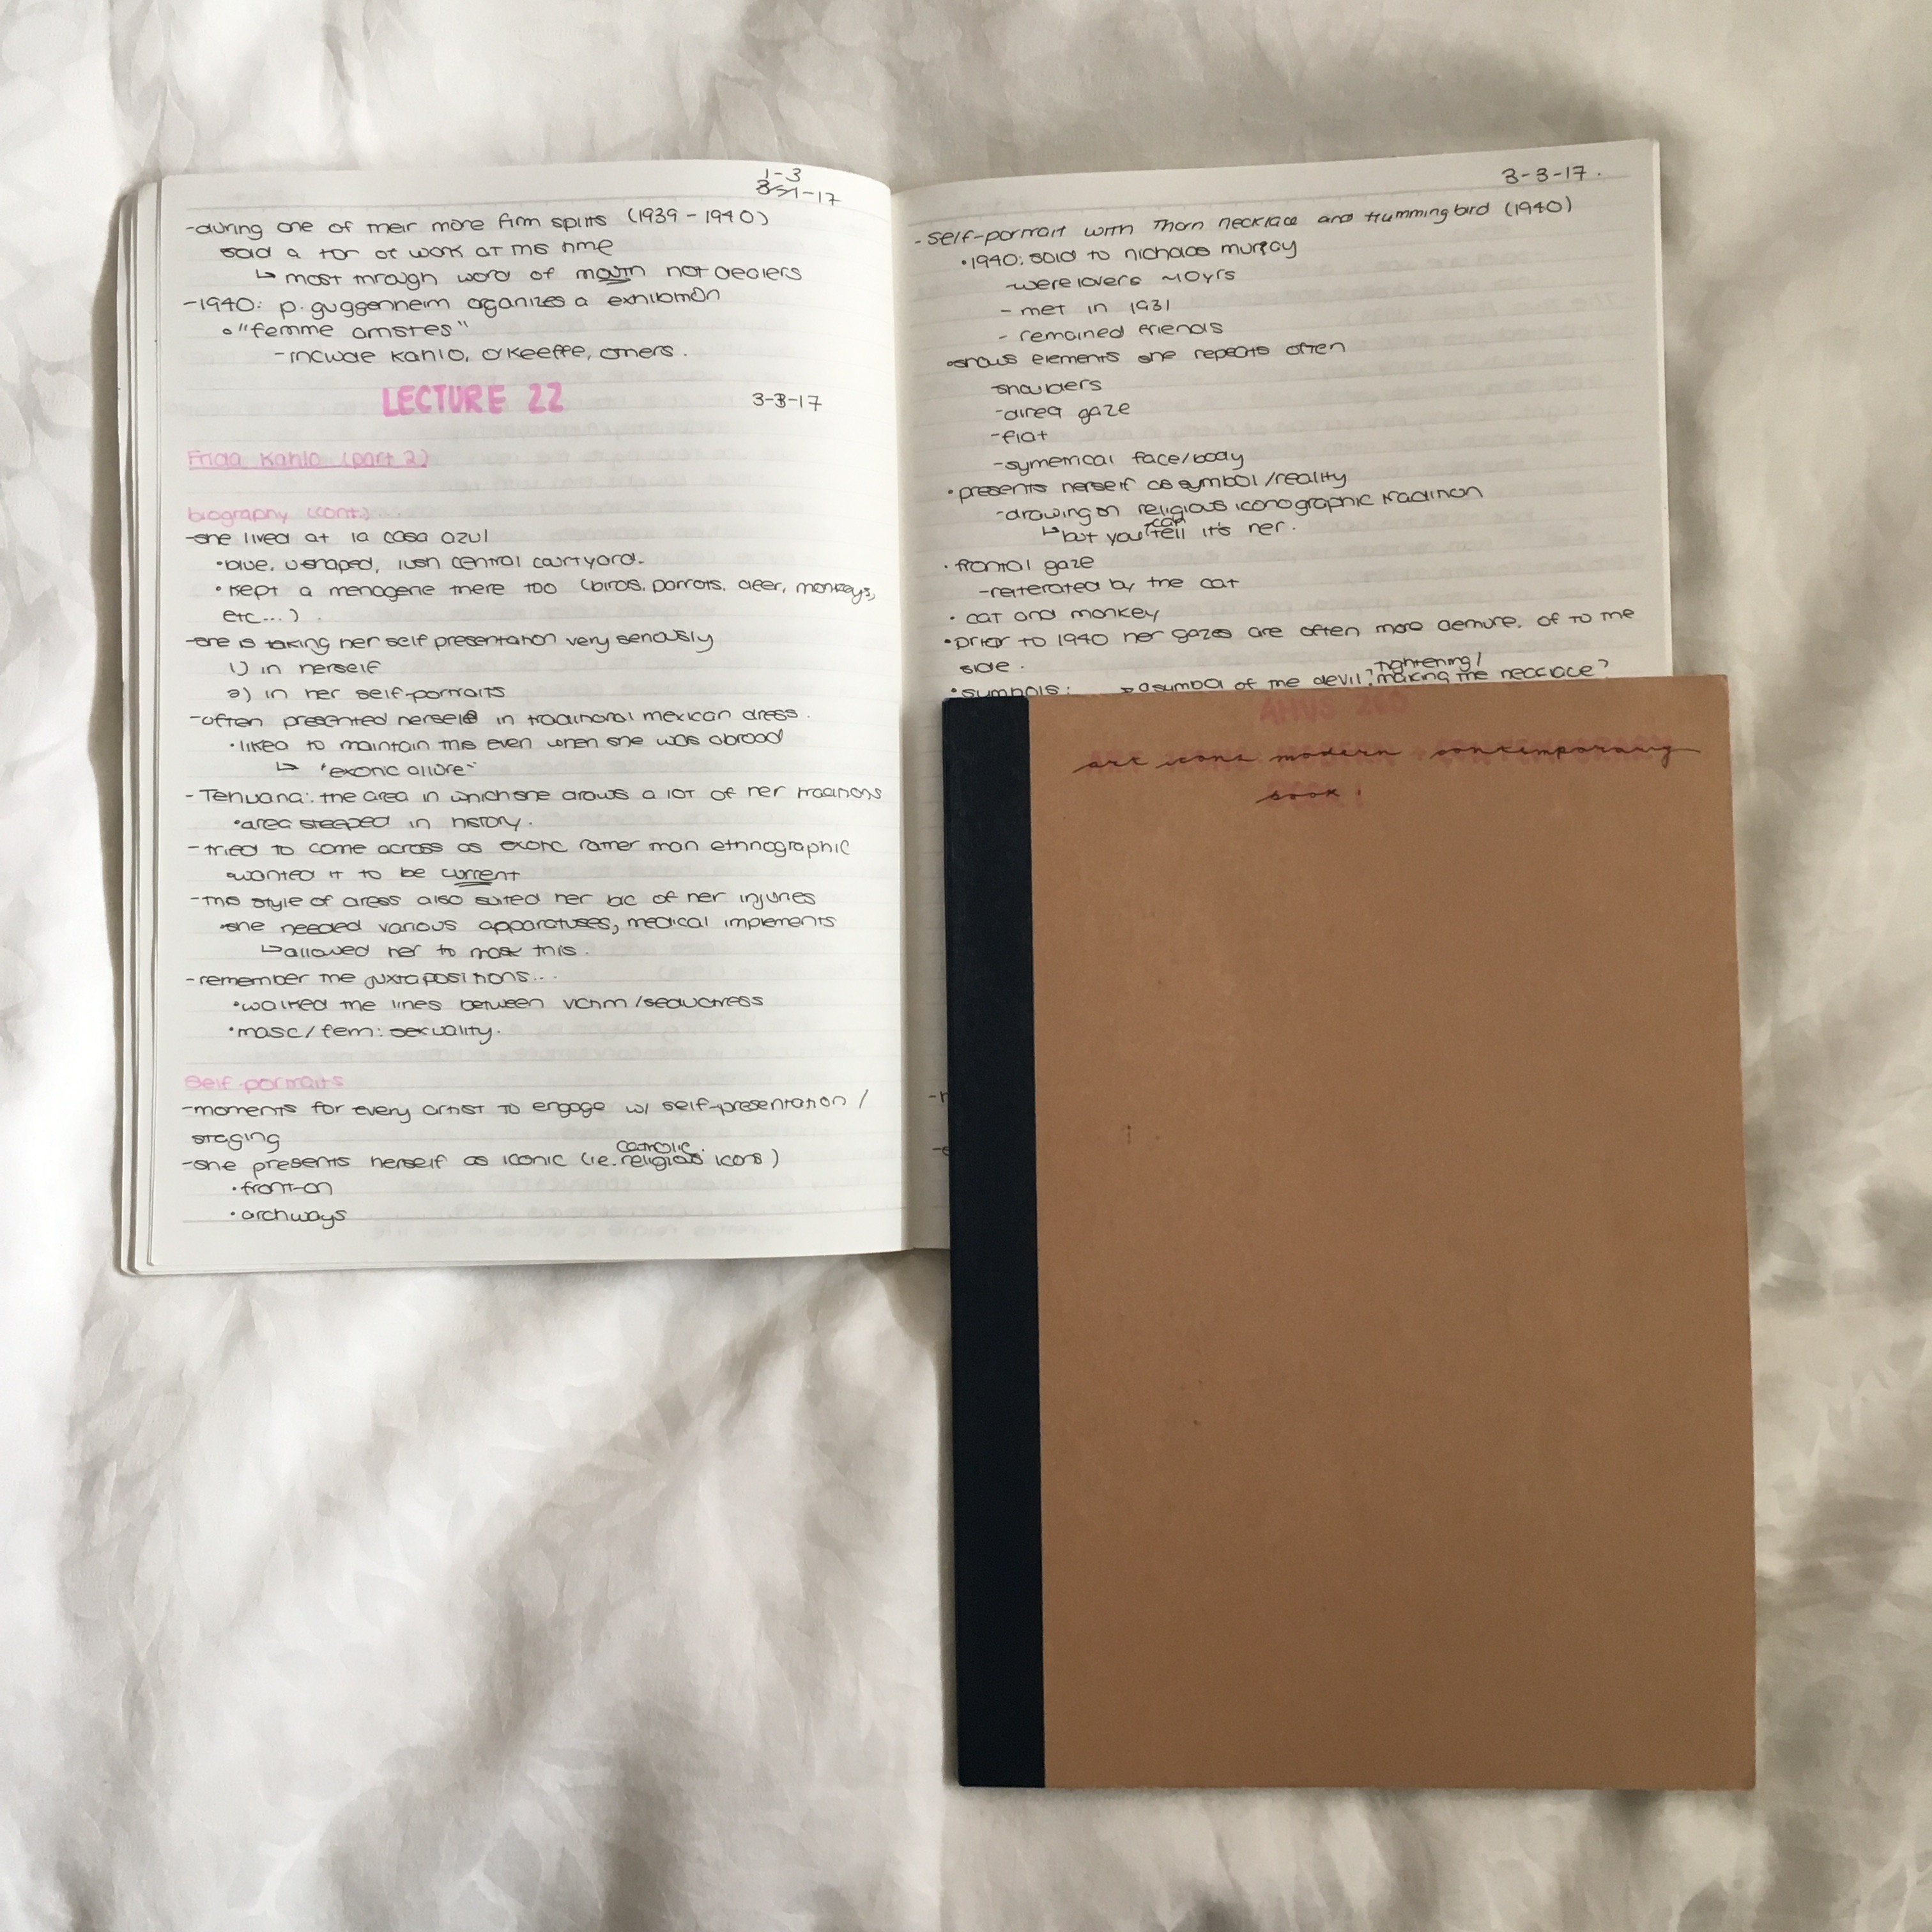 1-3
3-1-17
-during one of their more firm splits (1939-1940)
sold a ton of work at this time
↳ most through word of mouth not dealers
-1940: p. guggenheim organizes a exhibition
• "femme artistes"
-include kahlo, o'keeffe, others.
LECTURE 22
3-3-17
Frida Kahlo (part 2)
biography (cont.)
-she lived at la casa azul
•blue, u shaped, lush central courtyard.
•kept a menagerie there too (birds, parrots, deer, monkeys,
etc...)
-she is taking her self presentation very seriously
1) in herself
2) in her self-portraits
-often presented herself in traditional mexican dress.
•liked to maintain this even when she was abroad
↳ "exotic allure"
-Tehuana: the area in which she draws a lot of her traditions
•area steeped in history.
-tried to come across as exotic rather than ethnographic
•wanted it to be current
-this style of dress also suited her bc of her injuries
•she needed various apparatuses, medical implements
↳allowed her to mask this.
-remember the juxtapositions...
•walked the lines between victim/seductress
•masc/fem: sexuality.
Self-portraits
-moments for every artist to engage w/ self-presentation /
staging
-she presents herself as iconic (ie. catholic religious icons)
•front-on
•archways
3-3-17.
-self-portrait with Thorn necklace and Hummingbird (1940)
•1940: sold to nicholas murray
-were lovers ~10yrs
- met in 1931
- remained friends
•shows elements she repeats often
-shoulders
-direct gaze
-flat
-symetrical face/body
•presents herself as symbol/reality
-drawing on religious iconographic tradition
↳but you can tell it's her.
•frontal gaze
-reiterated by the cat
• cat and monkey
•prior to 1940 her gazes are often more demure, of to the
side.
•symbols: → a symbol of the devil? tightening/ making the necklace?
AHVS 265
art icons modern + contemporary
book!